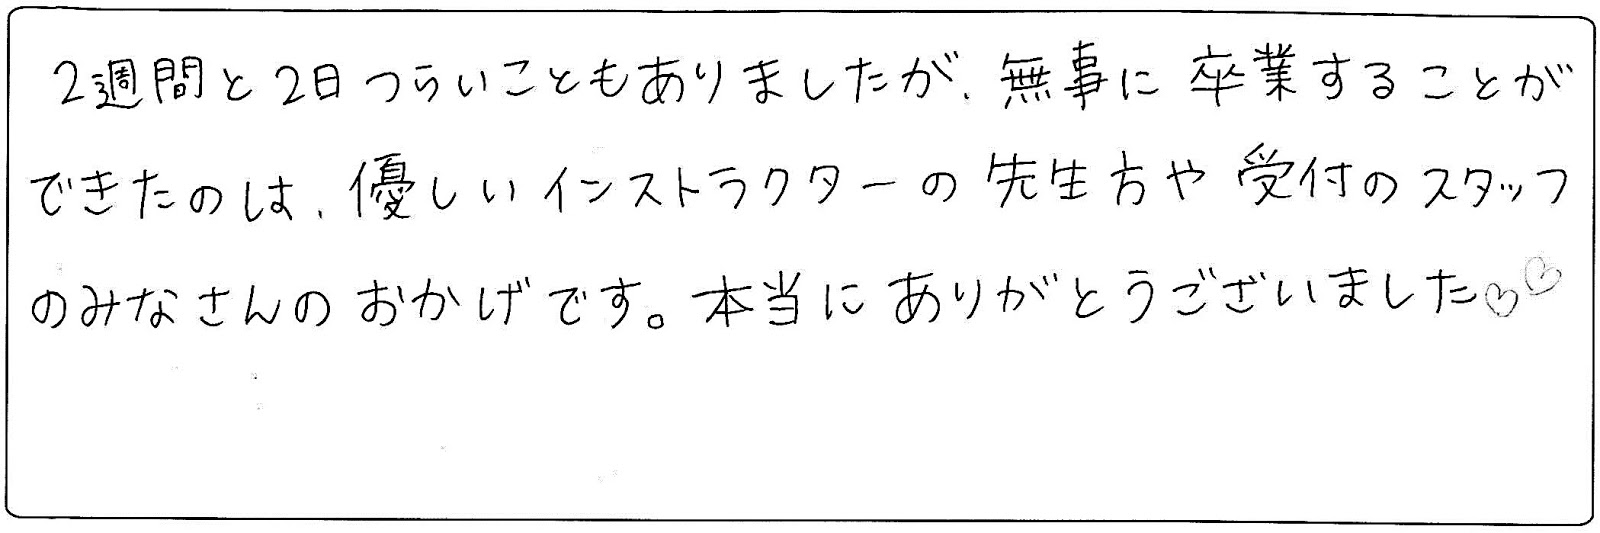 2週間と2日つらいこともありましたが、無事に卒業することが
できたのは、優しいインストラクターの先生方や受付のスタッフ
のみなさんのおかげです。本当にありがとうございました♡♡